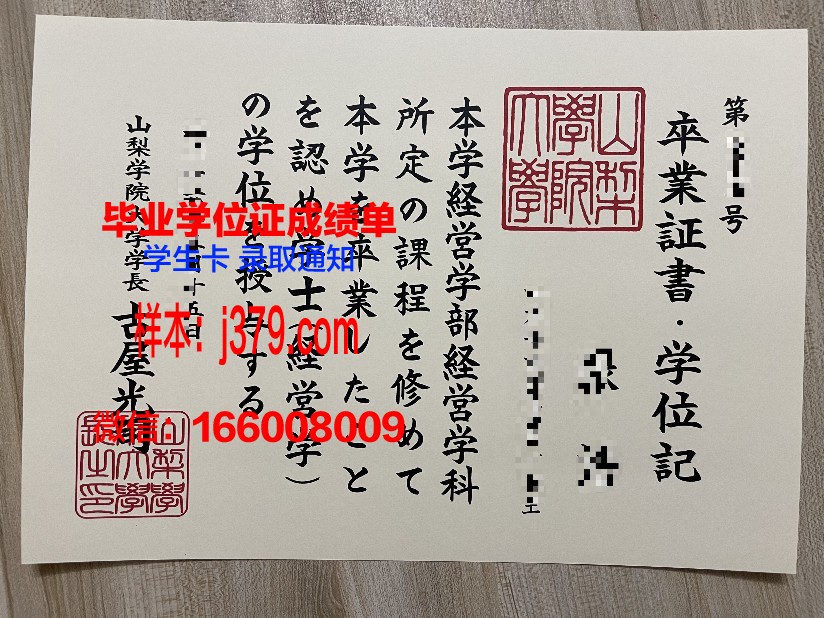 第
号
卒業証書・学位記
山梨
學院
大學
本学経営学部経営学科
所定の課程を修めて
本学を卒業したこと
を認め学士(経営学)
の学位を授与する
十五日
山梨学院大学学長 古屋光
山梨學
院大學
長之印
毕业学位证成绩单
学生卡 录取通知
样本: j379.com
微信: 166008009